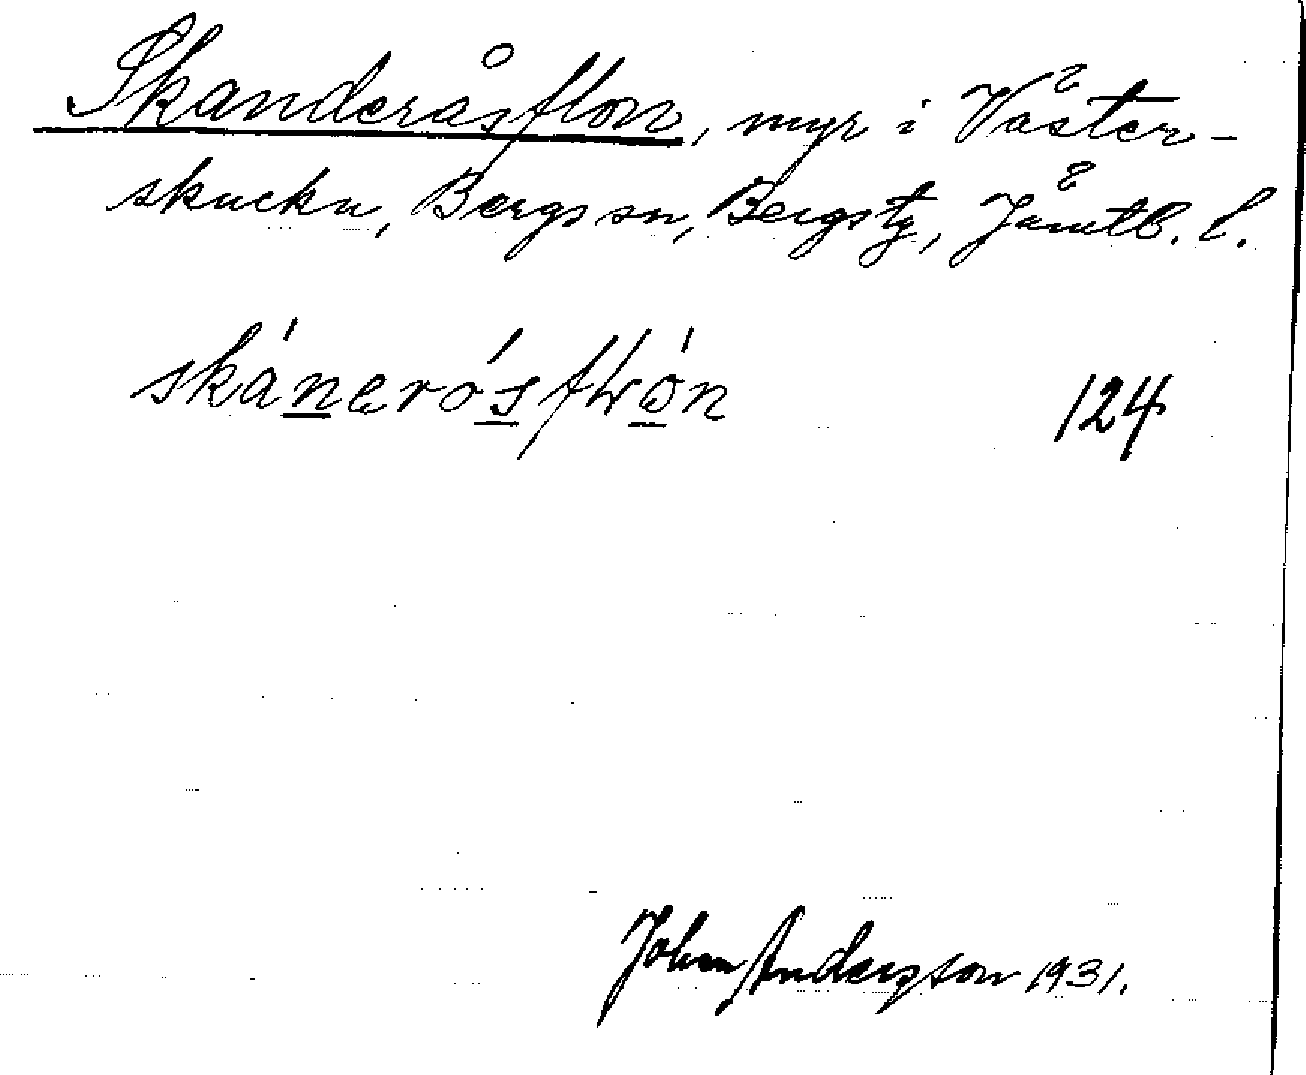 Skanderåsflon, myr i Väster-
skucku, Bergs sn, Bergs tg, Jämtl. l.
skánerósflón 124
John Andersson 1931.